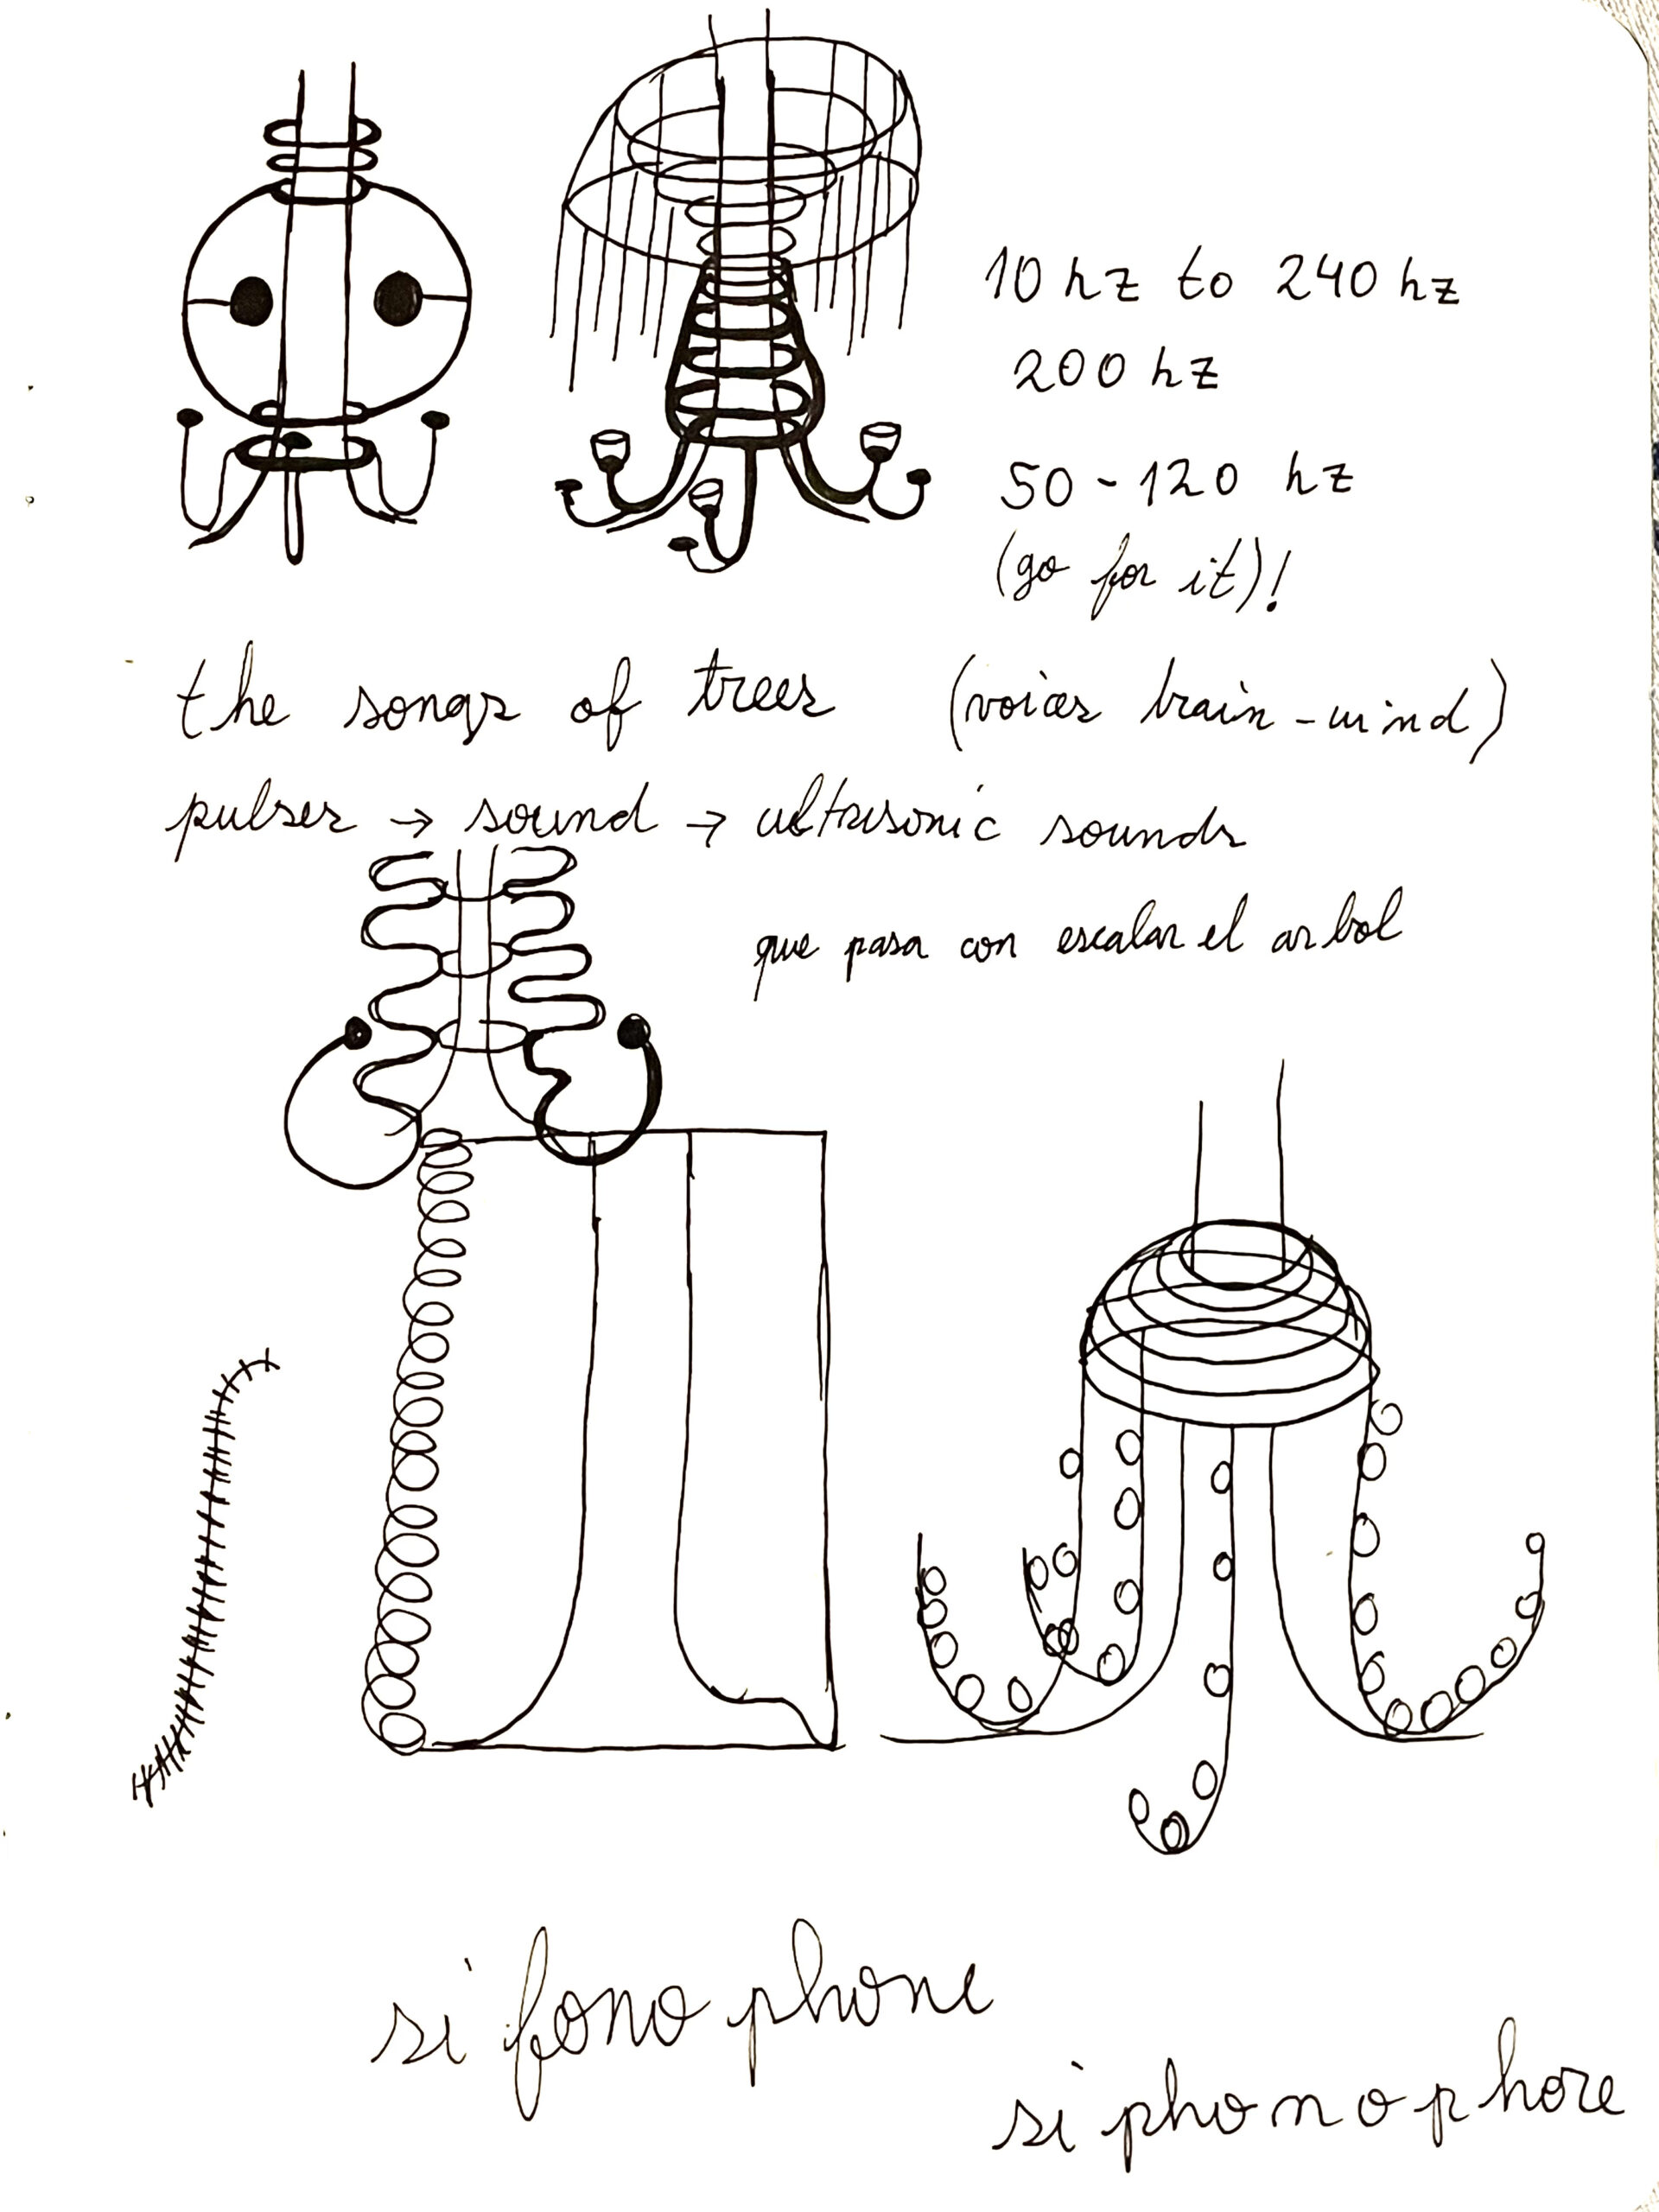 10 hz to 240 hz
200 hz
50-120 hz
(go for it)!
the songs of trees (voices brain-wind)
pulses → sound → ultrasonic sounds
que pasa con escalar el arbol
sifonophone
siphonophore